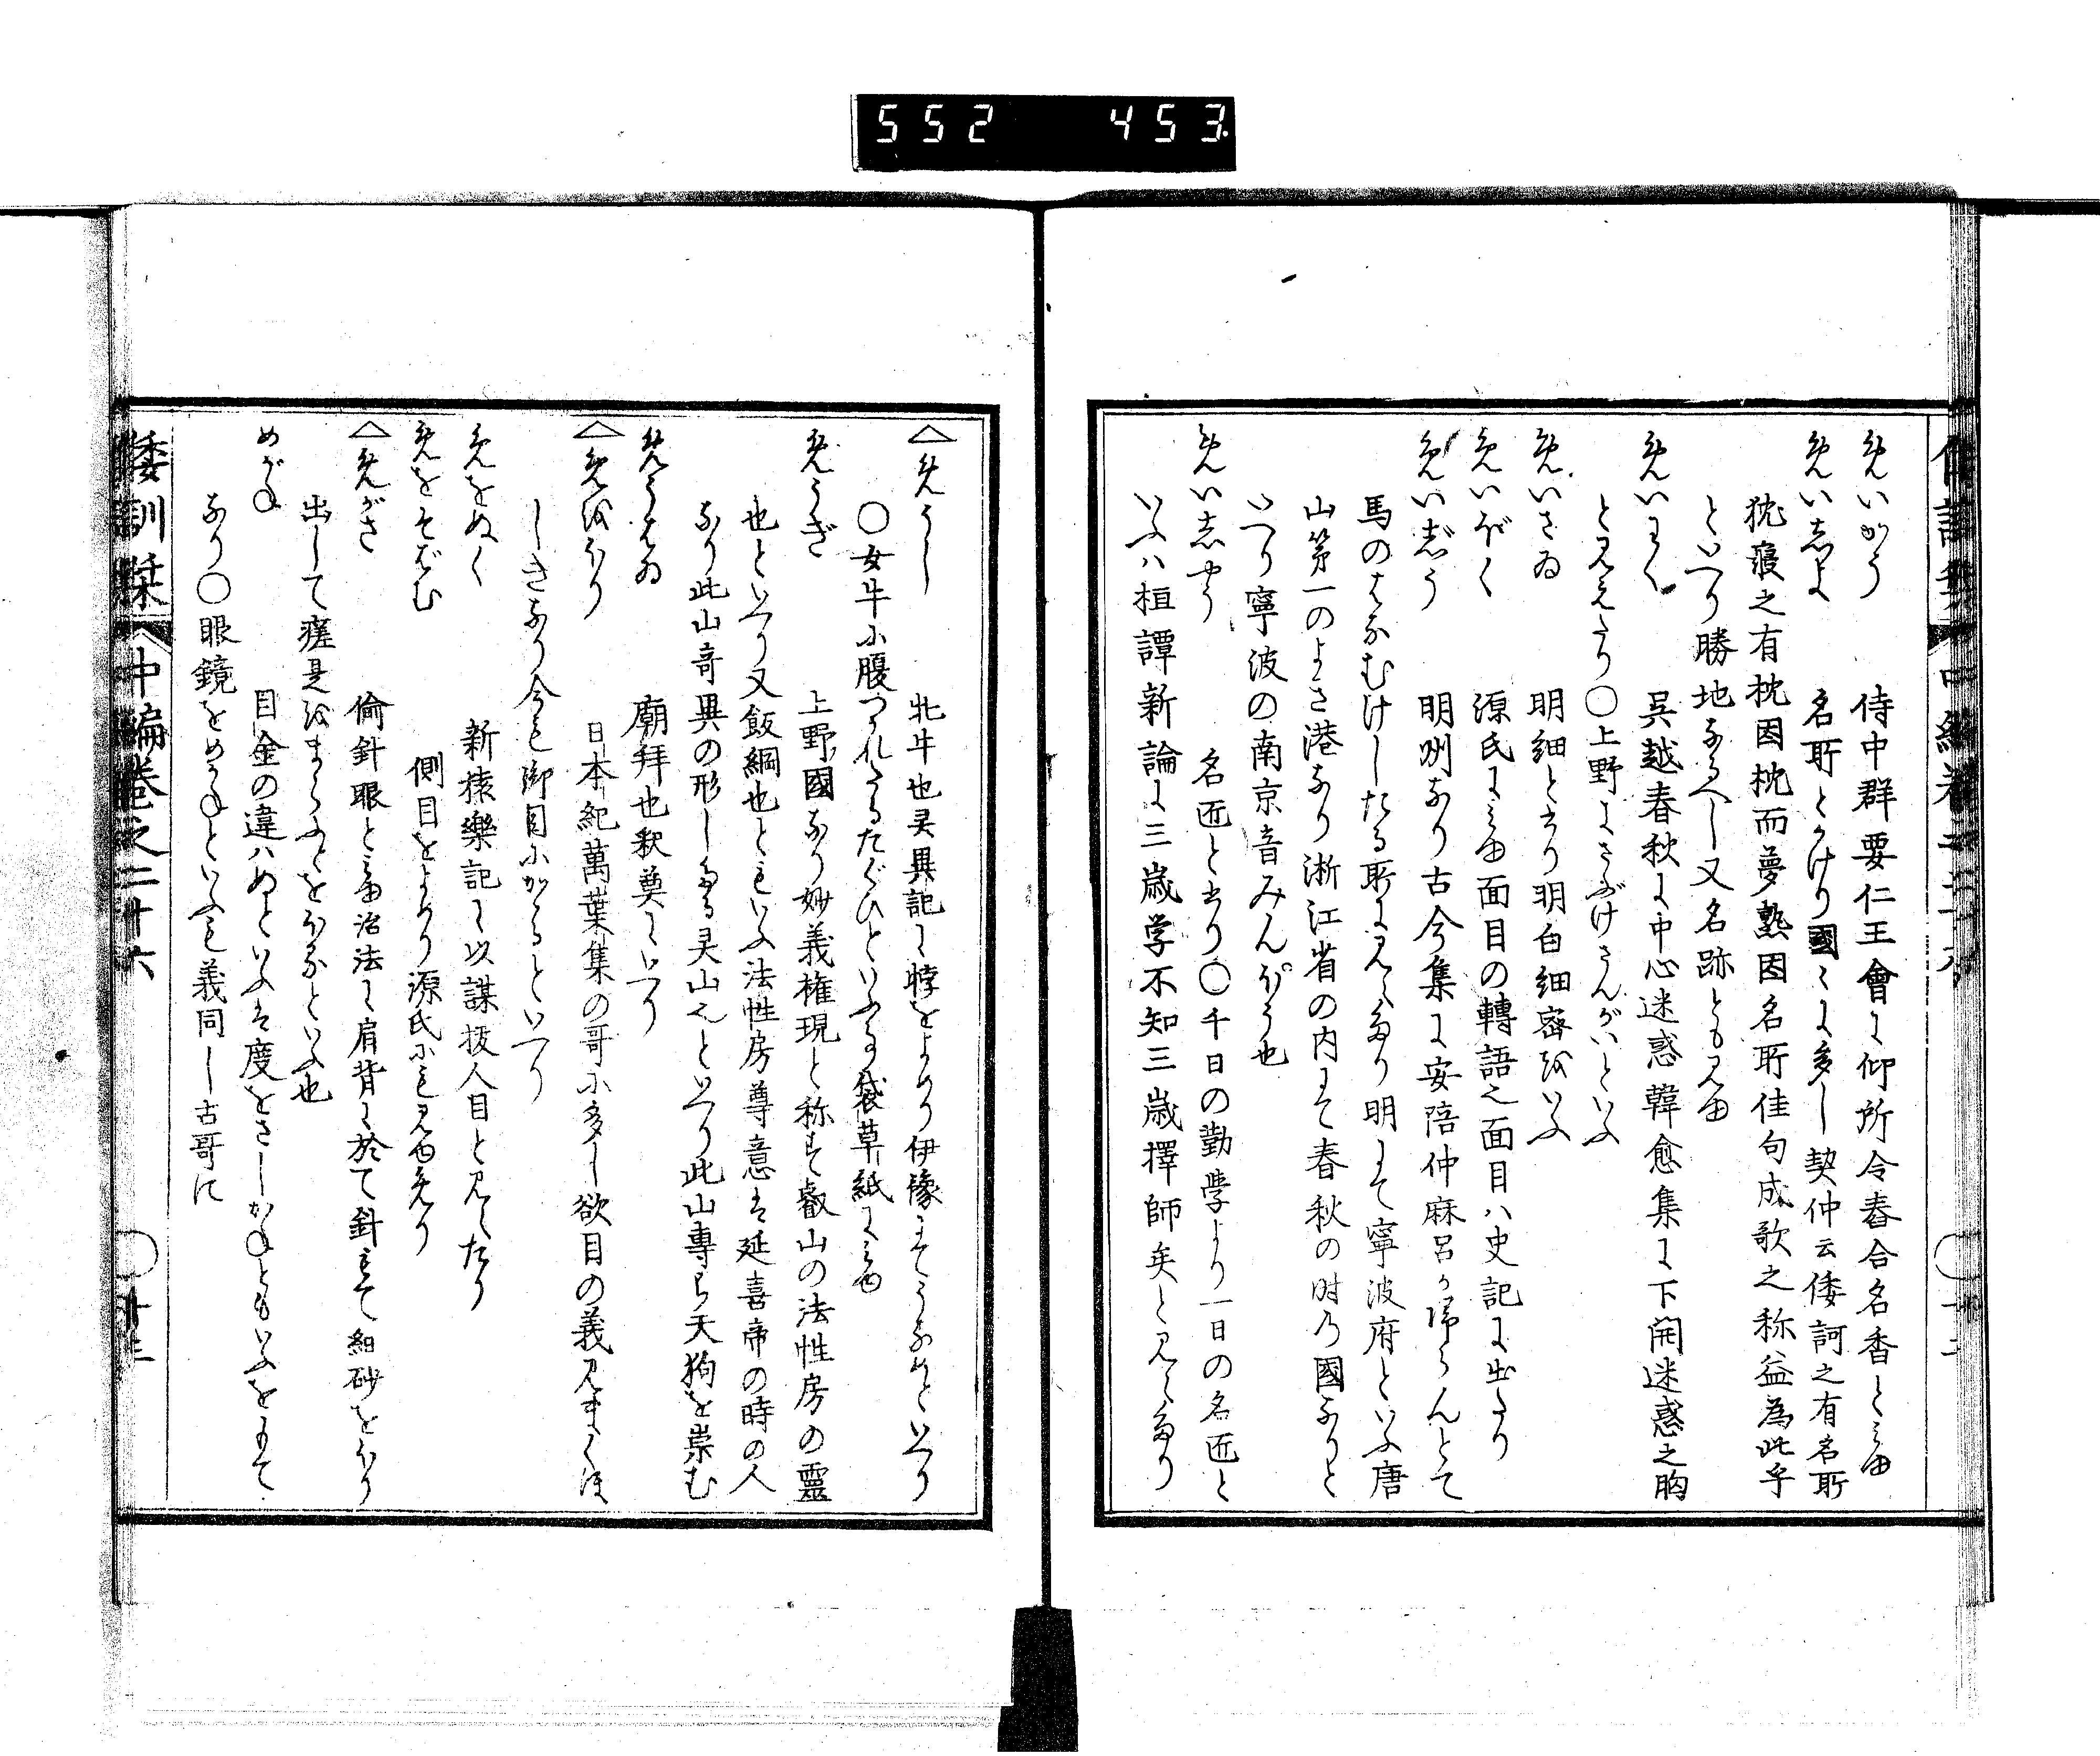 552 453
めいかう 侍中群要仁王會に仰所令舂合名香とみゆ
めいしよ 名所とかけり國〻に多し契仲云倭訶之有名所
猶寝之有枕因枕而夢熟因名所佳句成歌之称益為此乎
といへり勝地なるへし又名跡とも見ゆ
めいわく 呉越春秋に中心迷惑韓愈集に下開迷惑之胸
と見えたり○上野にさぶけさんがいといふ
めいさゐ 明細と書り明白細密をいふ
めいぼく 源氏にみゆ面目の轉語也面目ハ史記に出たり
めいじう 明州なり古今集に安陪仲麻呂か帰らんとて
馬のはなむけしたる所に見えたり明にて寧波府といふ唐
山第一のよき港なり浙江省の内にて春秋の時乃國なりと
いへり寧波の南京音みんぽう也
めいしやう 名匠と書り○千日の勤学より一日の名匠と
いふハ桓譚新論に三歳学不知三歳擇師矣と見えたり
△めうし 牝牛也灵異記に牸をよめり伊豫にてうなめといへり
○女牛に腹つかれたるたぐひといふ事袋草紙にみゆ
めうぎ 上野國なり妙義権現と称す叡山の法性房の靈
也といへり又飯綱也ともいふ法性房尊意は延喜帝の時の人
なり此山奇異の形しある灵山也といへり此山專ら天狗を崇む
めうはゐ 廟拜也釈奠にいへり
△めをほり 日本紀萬葉集の哥に多し欲目の義見まくほ
しきなり今も御目にかゝるといへり
めをぬく 新猿樂記に以謀拔人目と見えたり
めをそばむ 側目をよめり源氏にも見ゆめり
△めがさ 偷針眼とみゆ治法に肩背に於て針もて細砂をほり
出して瘥是をまらふどをほかすといふ也
めがね 目金の違ハぬといふは度をさしがねともいふをもて
なり○眼鏡をめかねといふも義同し古哥に
倭訓栞 中編巻之二十六 ○廿三